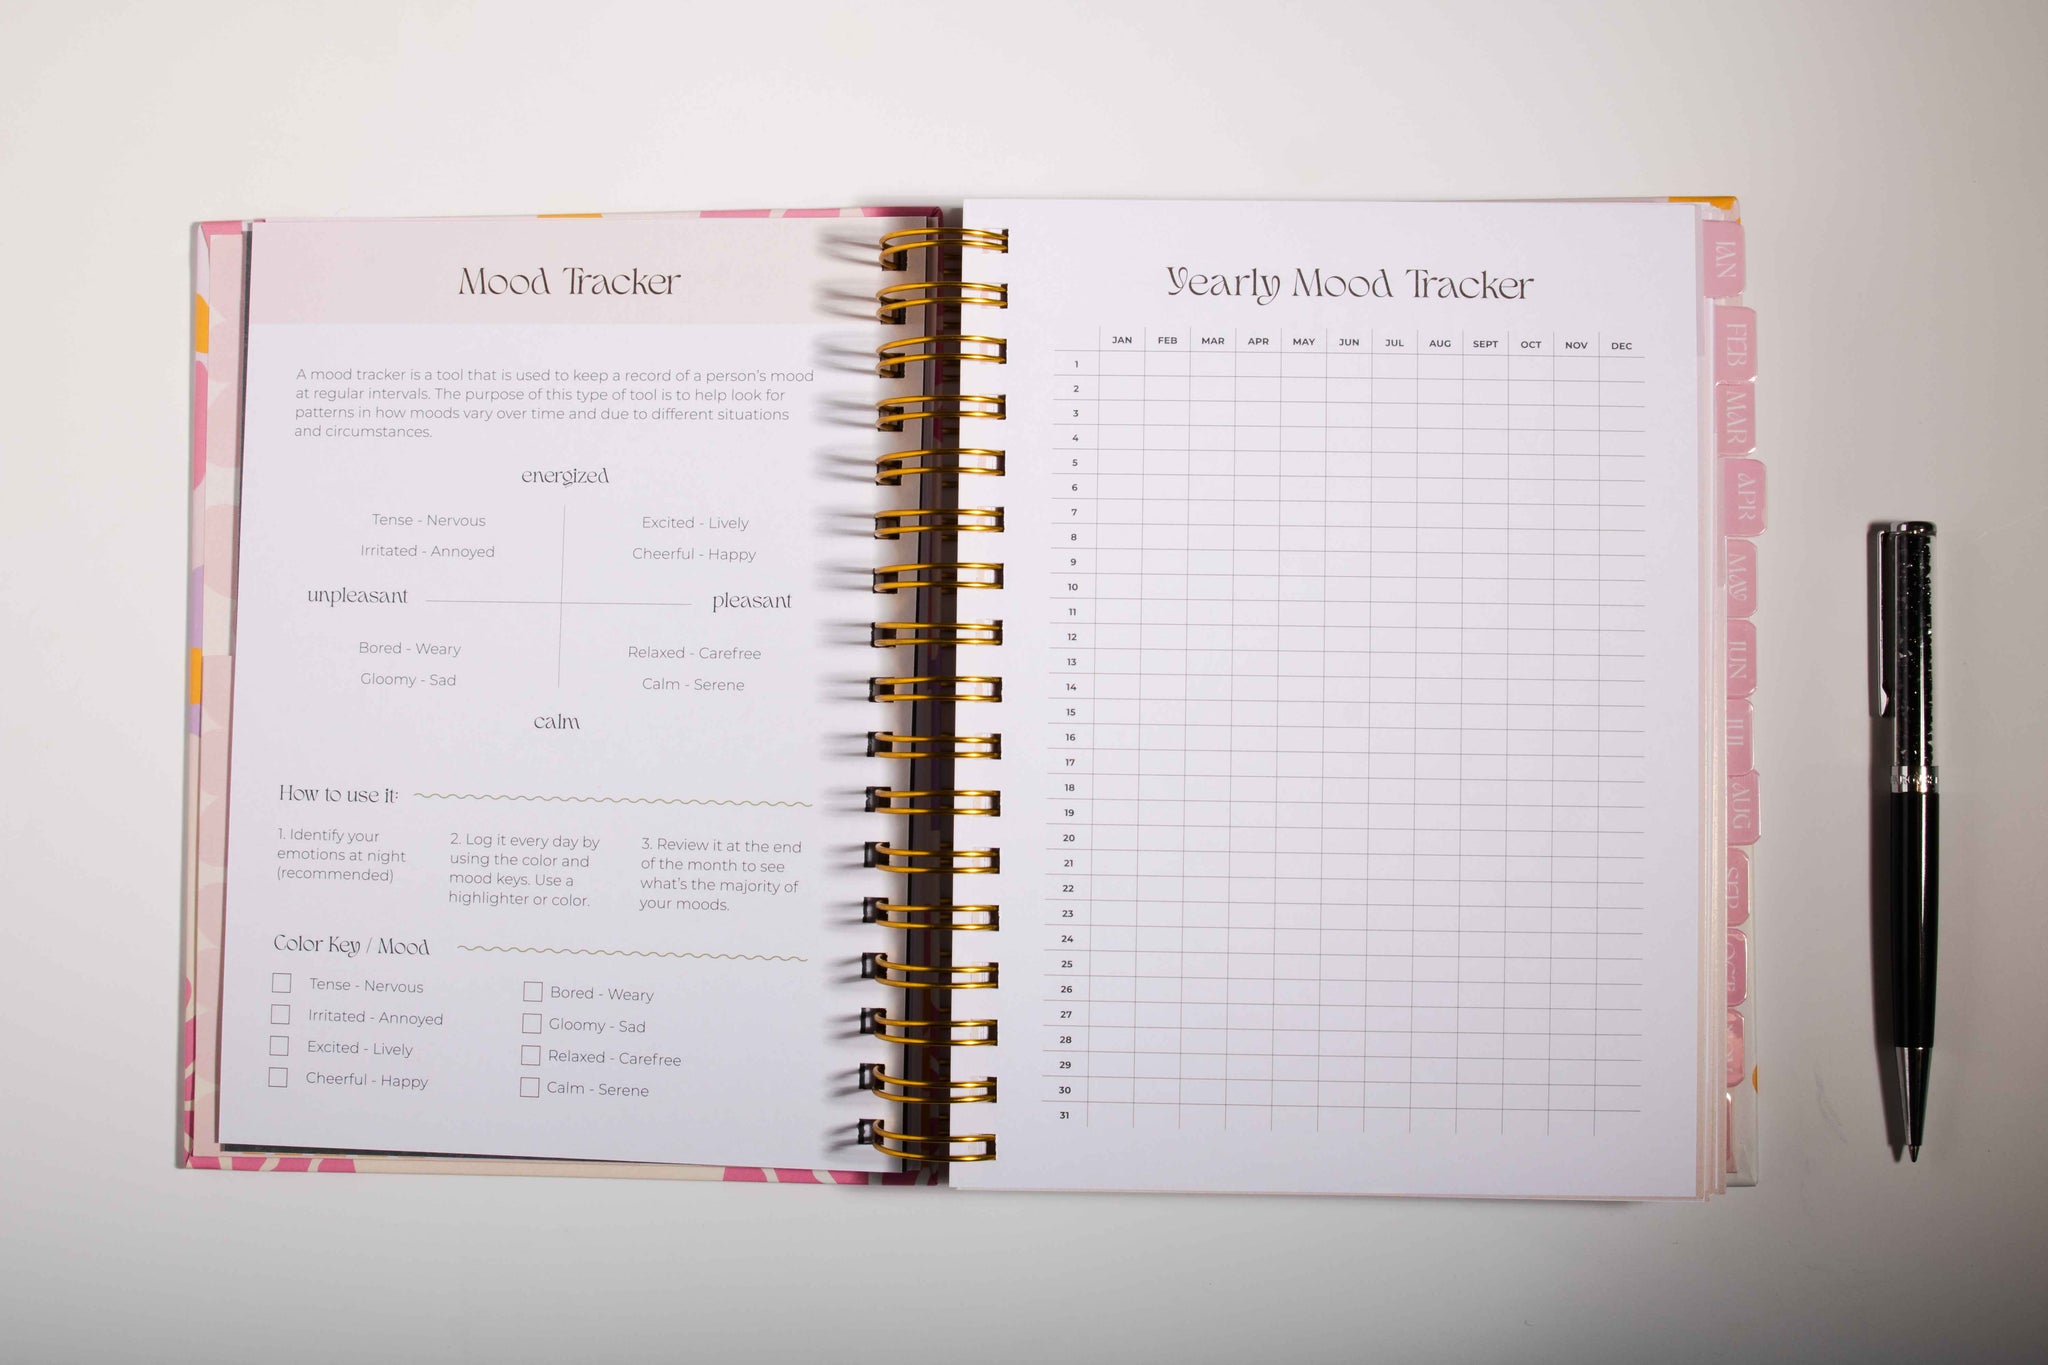 Mood Tracker
A mood tracker is a tool that is used to keep a record of a person's mood
at regular intervals. The purpose of this type of tool is to help look for
patterns in how moods vary over time and due to different situations
and circumstances.
energized
Tense - Nervous
Excited - Lively
Irritated - Annoyed
Cheerful - Happy
unpleasant
pleasant
Bored - Weary
Relaxed - Carefree
Gloomy - Sad
Calm - Serene
calm
How to use it:
1. Identify your
emotions at night
(recommended)
2. Log it every day by
using the color and
mood keys. Use a
highlighter or color.
3. Review it at the end
of the month to see
what's the majority of
your moods.
Color Key / Mood
Tense - Nervous
Irritated - Annoyed
Excited - Lively
Cheerful - Happy
Bored - Weary
Gloomy - Sad
Relaxed - Carefree
Calm - Serene
Yearly Mood Tracker
JAN FEB MAR APR MAY JUN JUL AUG SEPT OCT NOV DEC
1
2
3
4
5
6
7
8
9
10
11
12
13
14
15
16
17
18
19
20
21
22
23
24
25
26
27
28
29
30
31
JAN
FEB
MAR
APR
MAY
JUN
JUL
AUG
SEP
OCT